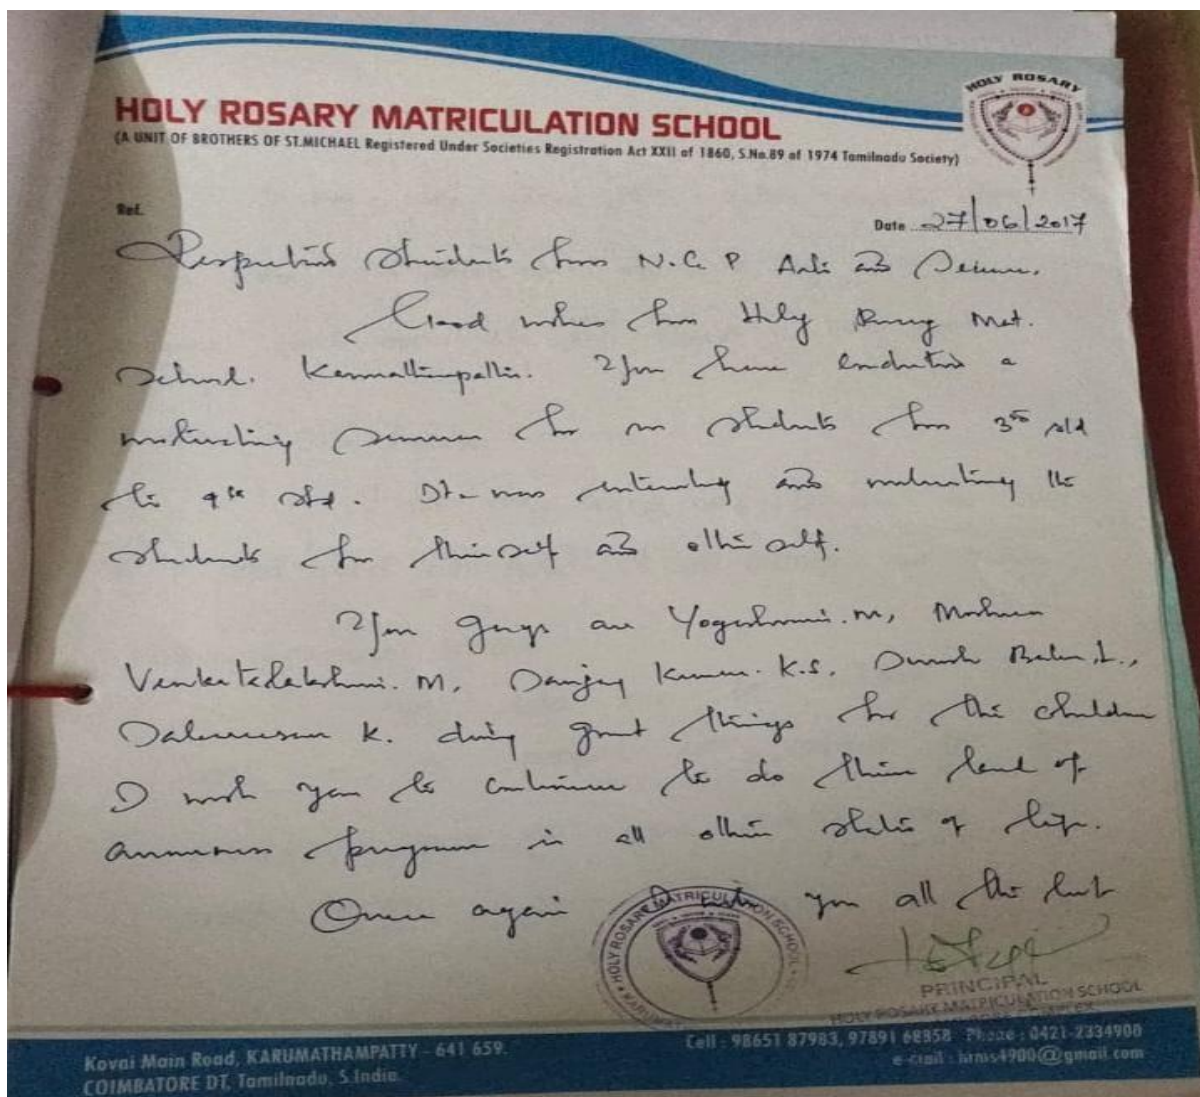 HOLY ROSARY
HOLY ROSARY MATRICULATION SCHOOL
(A UNIT OF BROTHERS OF ST.MICHAEL Registered Under Societies Registration Act XXII of 1860, S.No.89 of 1974 Tamilnadu Society)
Ref.
Date 27/06/2017
Respected Students from N.G.P Arts and Science.
Good wishes from Holy Rosary Mat.
School. Karumathampatti. You have conducted a
motivating seminar for our students from 3rd std
to 9th std. It was interesting and motivating the
students for their self and other self.
You guys are Yogeshwari. M,
Venkatalakshmi. M, Sanjay Kumar. K.S, Suresh Babu. L.,
K. doing great things for the children
I wish you to continue to do this kind of
awareness program in all other states of life.
Once again I wish you all the best
HOLY ROSARY MATRICULATION SCHOOL
PRINCIPAL
HOLY ROSARY MATRICULATION SCHOOL
Kovai Main Road, KARUMATHAMPATTY - 641 659.
COIMBATORE DT, Tamilnadu, S.India.
Cell : 98651 87983, 97891 68858 Phone : 0421-2334900
e-mail : hrms4900@gmail.com